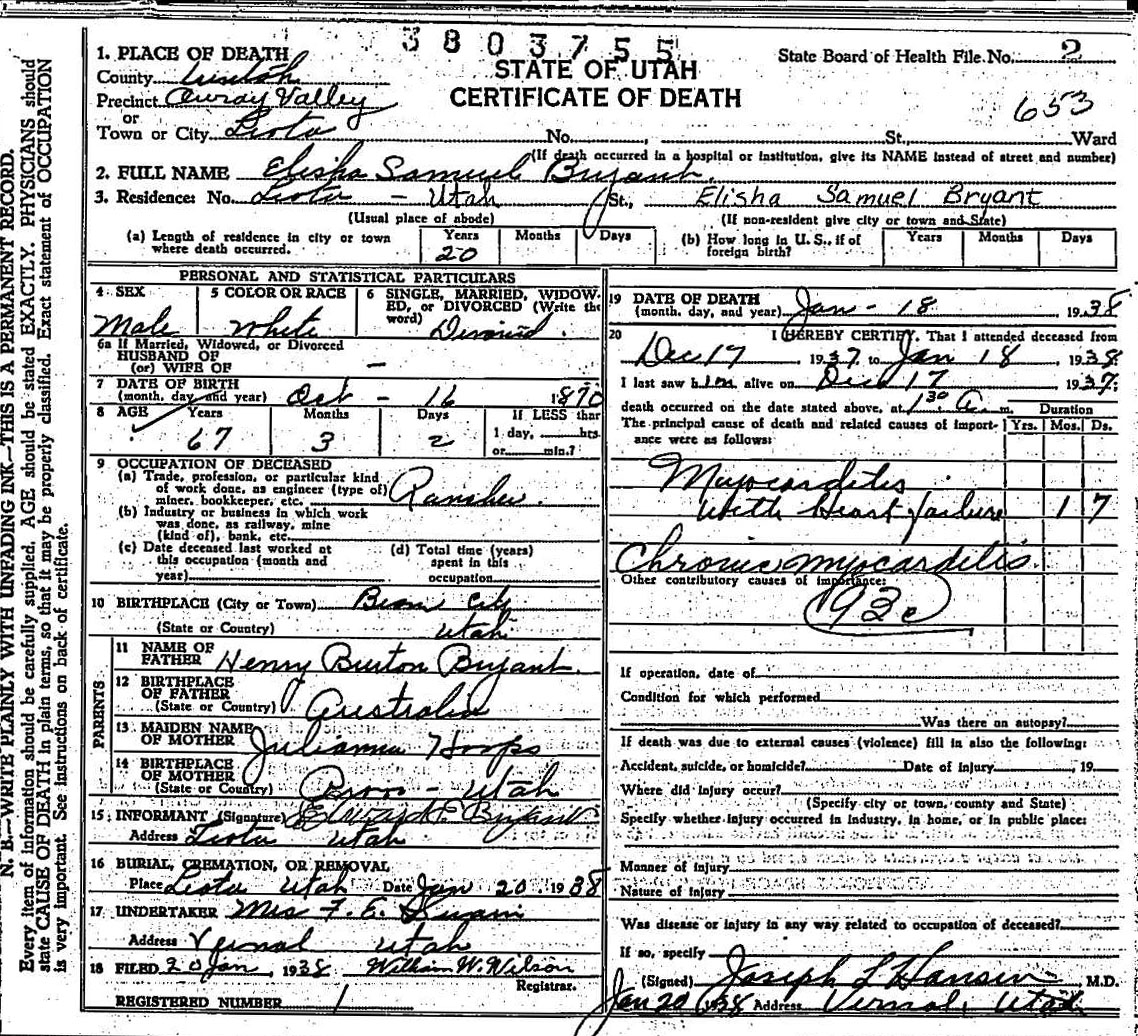 3803755
State Board of Health File No. 2
STATE OF UTAH
CERTIFICATE OF DEATH
653
1. PLACE OF DEATH
County Uintah
Precinct Ouray Valley
or
Town or City Leota No. , St., Ward
(If death occurred in a hospital or institution, give its NAME instead of street and number)
2. FULL NAME Elisha Samuel Bryant.
3. Residence: No. Leota - Utah St., Elisha Samuel Bryant
(Usual place of abode) (If non-resident give city or town and State)
(a) Length of residence in city or town where death occurred. Years 20 Months Days (b) How long in U. S., if of foreign birth? Years Months Days
PERSONAL AND STATISTICAL PARTICULARS
4 SEX Male
5 COLOR OR RACE White
6 SINGLE, MARRIED, WIDOW-
ED, or DIVORCED (Write the
word)
6a If Married, Widowed, or Divorced
HUSBAND OF
(or) WIFE OF -
7 DATE OF BIRTH
(month, day and year) Oct - 16 1870
8 AGE Years Months Days If LESS than
67 3 2 1 day, hrs
or min.?
9 OCCUPATION OF DECEASED
(a) Trade, profession, or particular kind
of work done, as engineer (type of)
miner, bookkeeper, etc. Rancher.
(b) Industry or business in which work
was done, as railway, mine
(kind of), bank, etc.
(c) Date deceased last worked at
this occupation (month and
year)
(d) Total time (years)
spent in this
occupation
10 BIRTHPLACE (City or Town) City
(State or Country) Utah
PARENTS
11 NAME OF
FATHER Henry Burton Bryant.
12 BIRTHPLACE
OF FATHER
(State or Country) Australia
13 MAIDEN NAME
OF MOTHER Julianna Hoops
14 BIRTHPLACE
OF MOTHER
(State or Country) - Utah
15 INFORMANT (Signature) Bryant
Address Leota Utah
16 BURIAL, CREMATION, OR REMOVAL
Place Leota Utah Date Jan 20. 1938
17 UNDERTAKER Mrs F. E. Swain
Address Vernal Utah
18 FILED 20 Jan, 1938 William W. Wilson
Registrar.
REGISTERED NUMBER 1
19 DATE OF DEATH
(month, day, and year) Jan - 18 1938
20 I HEREBY CERTIFY, That I attended deceased from
Dec 17 1937 to Jan 18 1938
I last saw him alive on Dec 17 1937
death occurred on the date stated above, at 1 30 a. m.
Duration
The principal cause of death and related causes of import-
ance were as follows:
Yrs. Mos. Ds.
Myocarditis
with Heart failure 1 7
Chronic myocarditis.
Other contributory causes of importance:
93c
If operation, date of
Condition for which performed
Was there an autopsy?
If death was due to external causes (violence) fill in also the following:
Accident, suicide, or homicide? Date of injury , 19
Where did injury occur?
(Specify city or town, county and State)
Specify whether injury occurred in industry, in home, or in public place:
Manner of injury
Nature of injury
Was disease or injury in any way related to occupation of deceased?
If so, specify
(Signed) Joseph L Hansen , M.D.
Jan 20 1938 Address Vernal, Utah
N. B.—WRITE PLAINLY WITH UNFADING INK—THIS IS A PERMANENT RECORD.
Every item of information should be carefully supplied. AGE should be stated EXACTLY. PHYSICIANS should
state CAUSE OF DEATH in plain terms, so that it may be properly classified. Exact statement of OCCUPATION
is very important. See instructions on back of certificate.